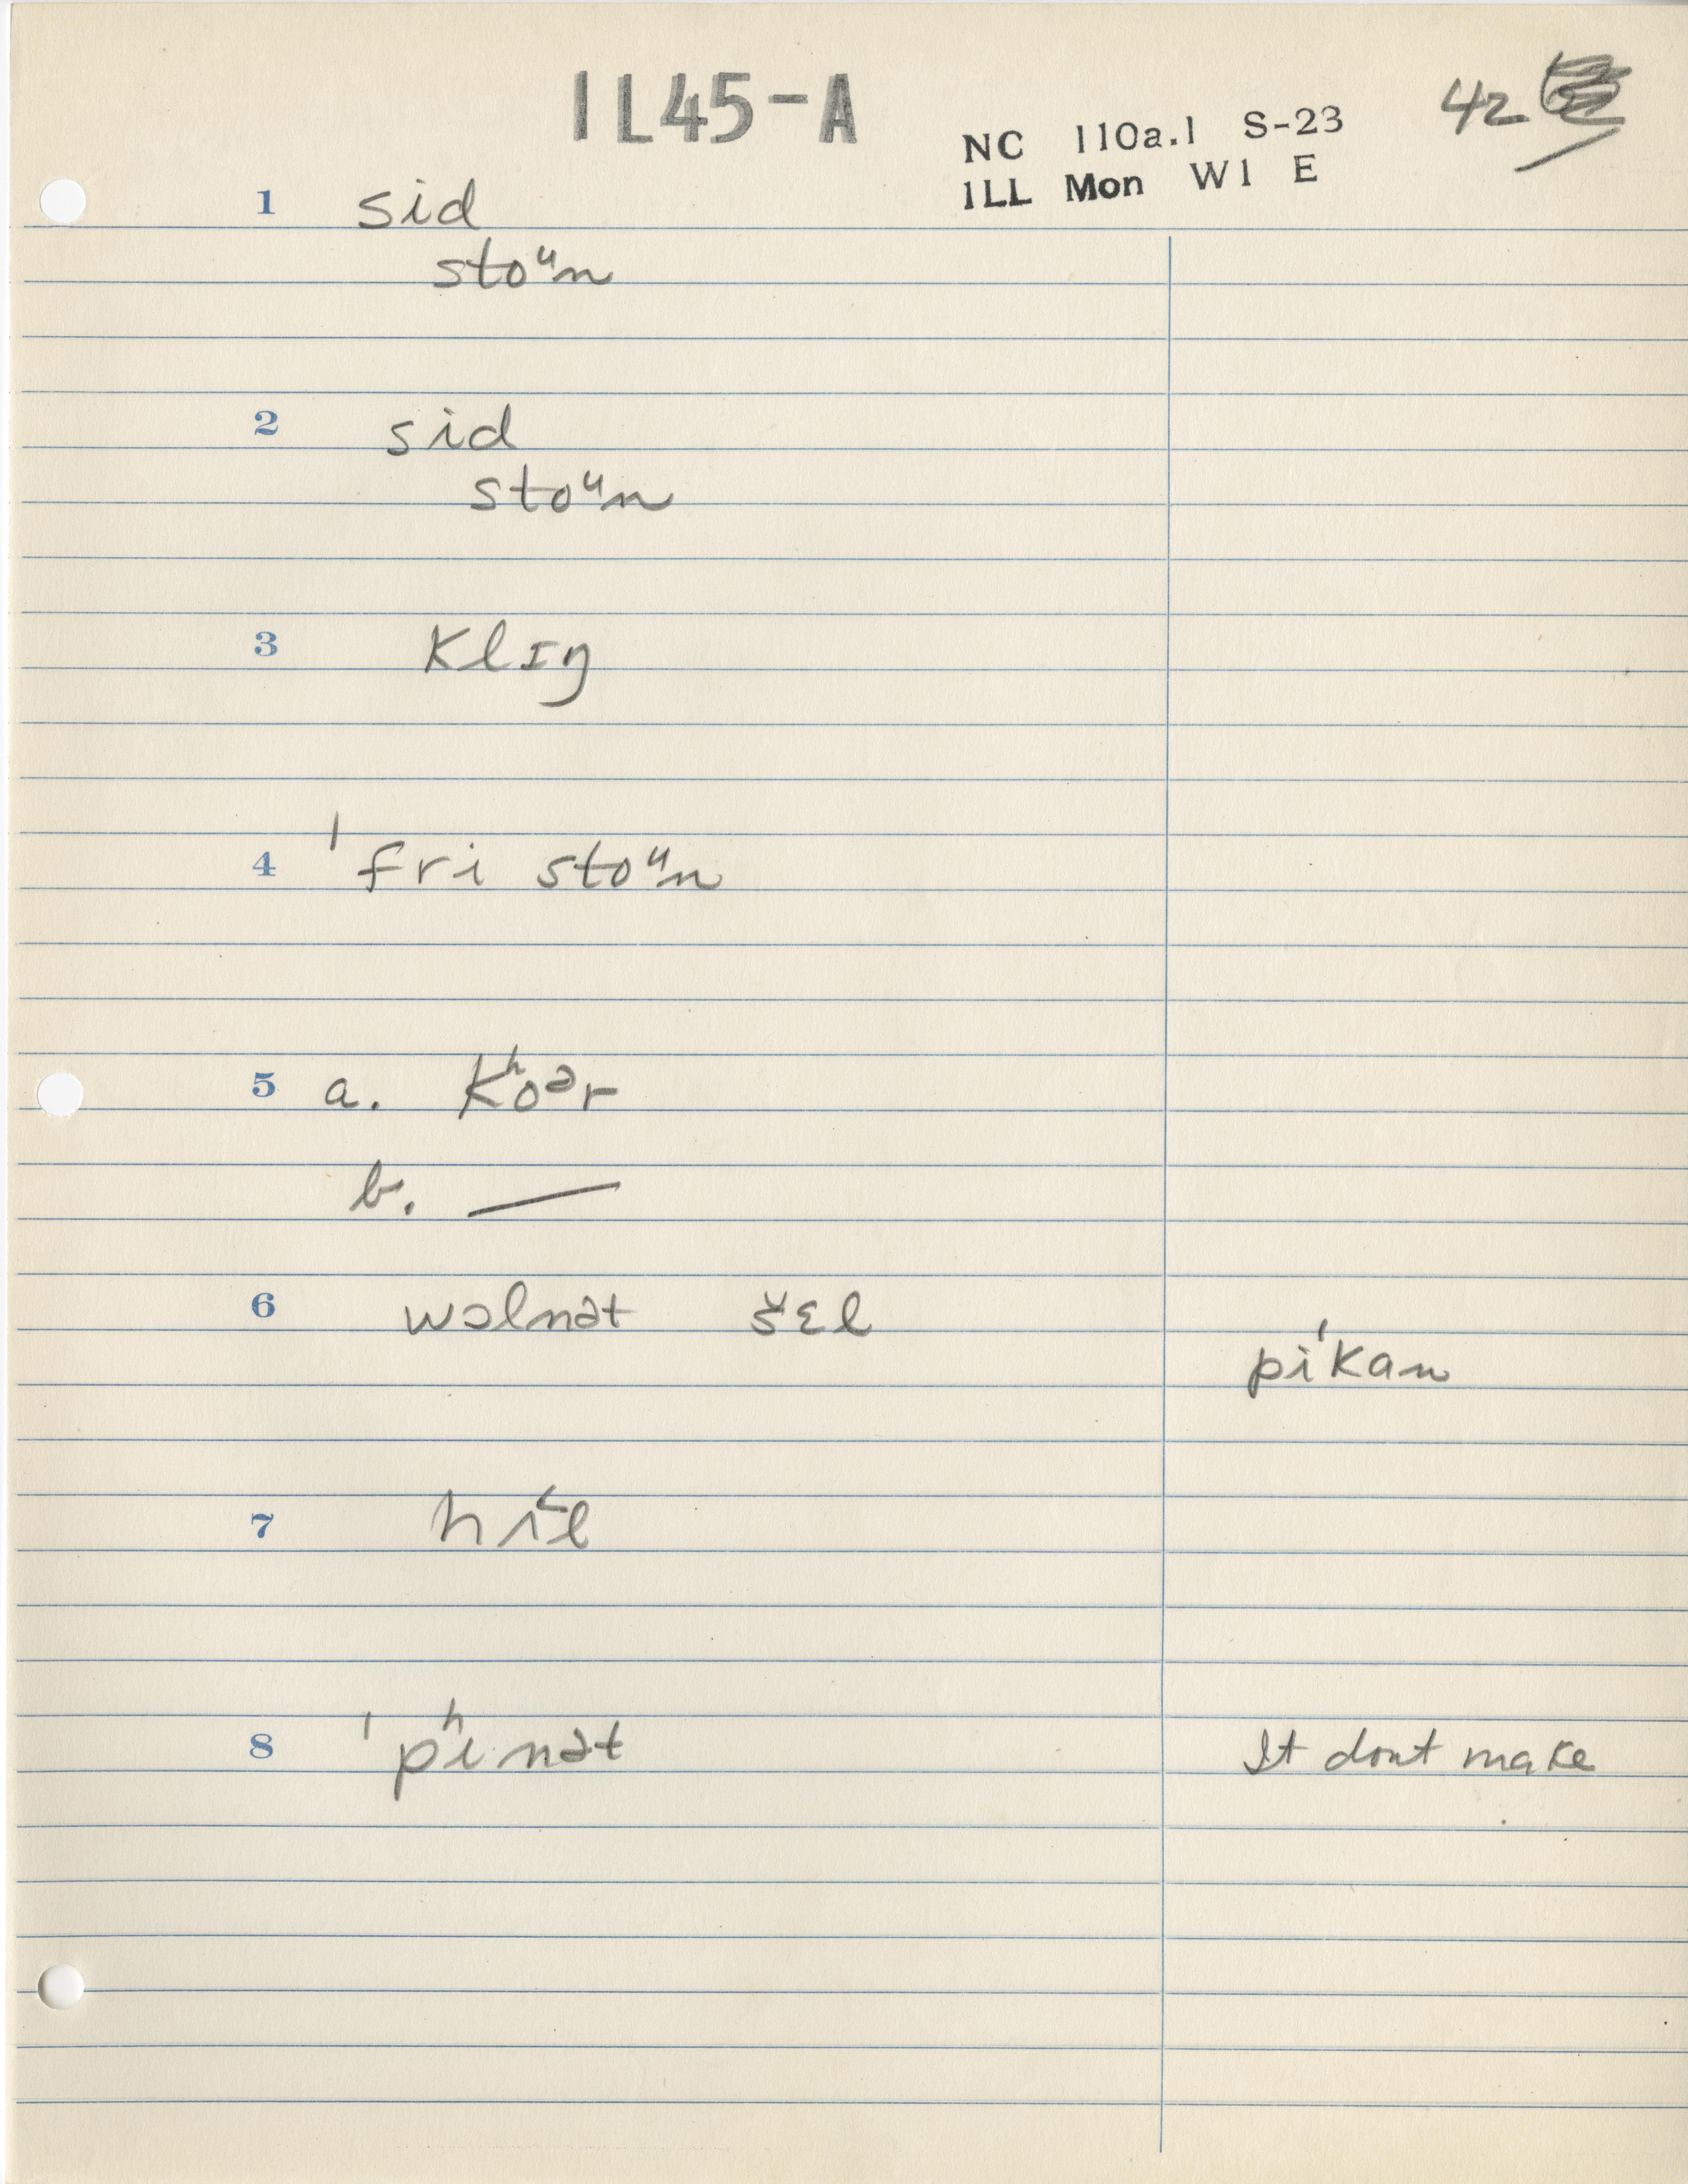 1L45-A
NC 110a.1 S-23 42
ILL Mon W1 E
1 sid
stoᵘn
2 sid
stoᵘn
3 klɪŋ
4 ˈfri stoᵘn
5 a. kʰoᵊr
b. —
6 wɔlnət šɛl
piˈkan
7 hʌ́l
8 ˈpʰinət It dont make